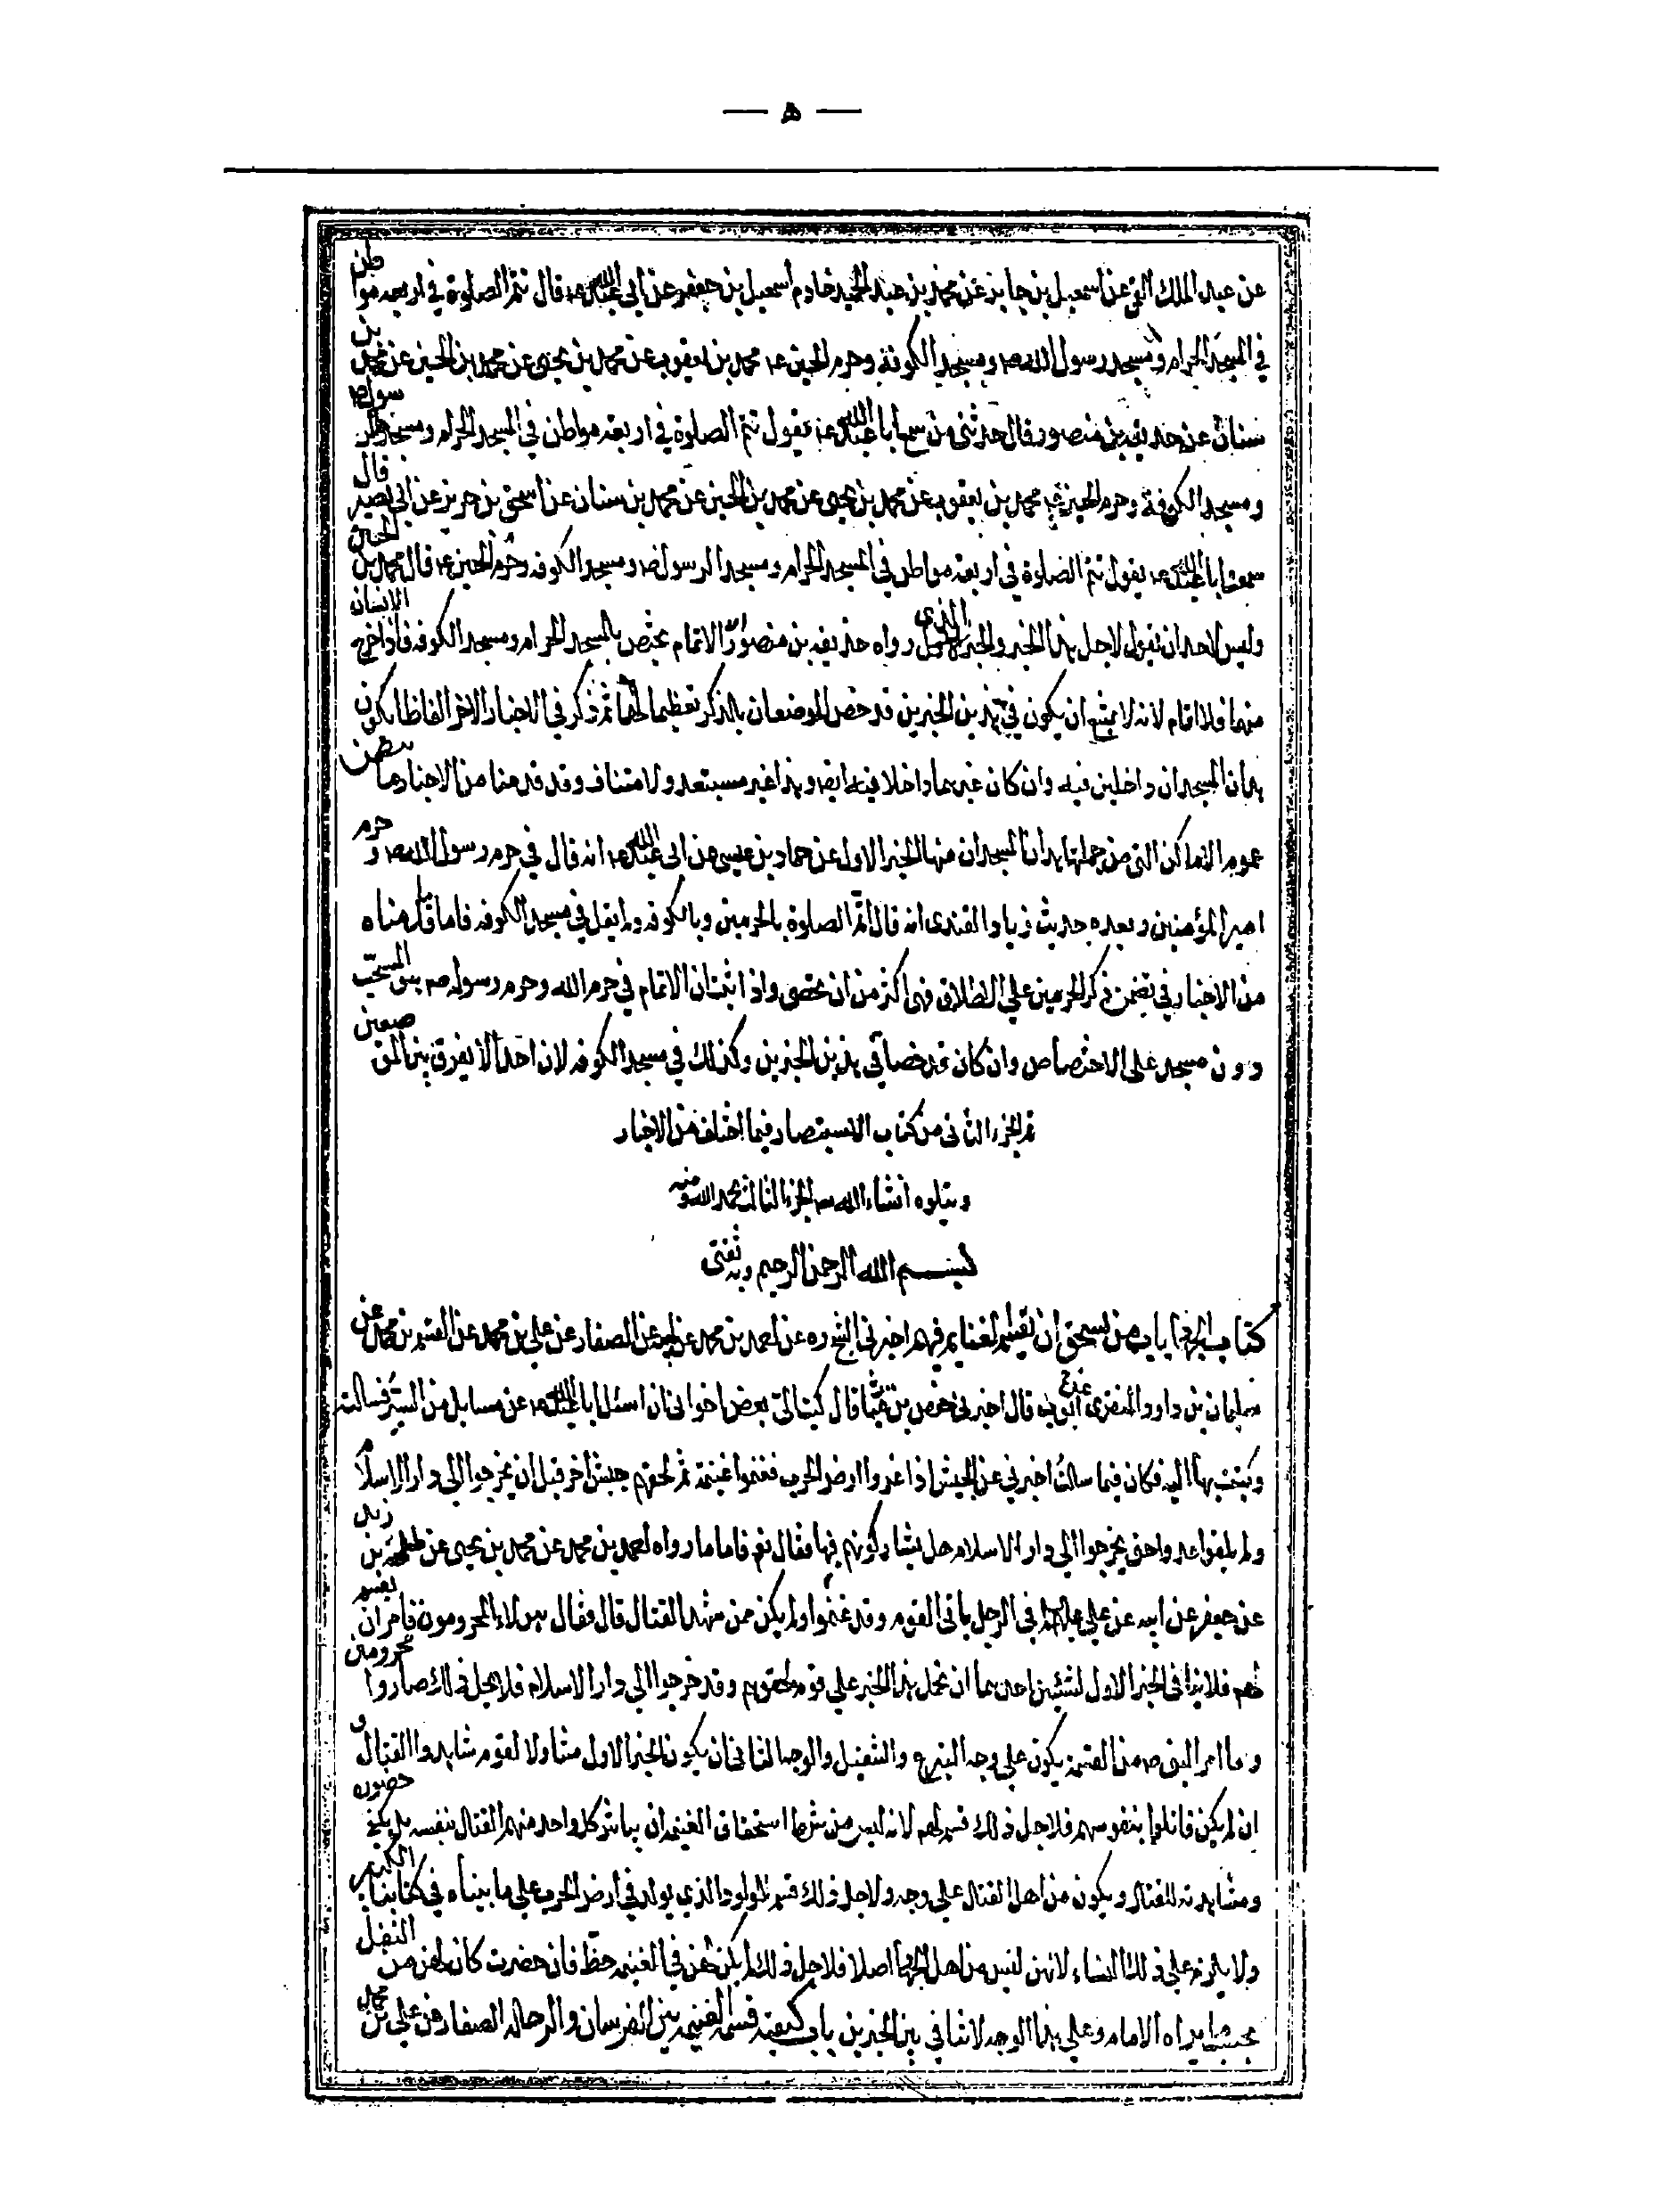 — ه —
عن عبد الملك القمي عن اسمعيل بن جابر عن محمد بن عبد الحميد خادم اسمعيل بن جعفر عن ابي عبد الله ع قال تتم الصلوة في اربعة مواطن
في المسجد الحرام ومسجد رسول الله ص ومسجد الكوفة وحرم الحسين ع محمد بن يعقوب عن محمد بن يحيى عن محمد بن الحسين عن محمد بن
سنان عن حذيفة بن منصور قال حدثني من سمع ابا عبد الله ع يقول تتم الصلوة في اربعة مواطن في المسجد الحرام ومسجد الرسول ص
ومسجد الكوفة وحرم الحسين ع محمد بن يعقوب عن محمد بن يحيى عن محمد بن الحسين عن محمد بن سنان عن اسحق بن حريز عن ابي بصير قال
سمعت ابا عبد الله ع يقول تتم الصلوة في اربعة مواطن في المسجد الحرام ومسجد الرسول ص ومسجد الكوفه وحرم الحسين ع قال محمد بن الحسن
وليس لاحد ان يقول لاجل هذا الخبر والخبر الذي رواه حذيفه بن منصور ان الاتمام يختص بالمسجد الحرام ومسجد الكوفه فاذا خرج الانسان
منها فلا اتمام لانه لا يمتنع ان يكون في هذين الخبرين قد خص الموضعان بالذكر تعظيما لهما ثم ذكر في الاخبار الاخر الفاظا يكون
هذان المسجدان داخلين فيه وان كان غيرهما داخلا فيه ايضا وهذا غير مستبعد ولا متناف وقد قدمنا من الاخبار ما يتضمن
عموم الاماكن التي من جملتها هذان المسجدان منها الخبر الاول عن حماد بن عيسى عن ابي عبد الله ع انه قال في حرم رسول الله ص وحرم
امير المؤمنين وبعده حديث زياد القندي انه قال اتم الصلوة بالحرمين وبالكوفه ولم يقل في مسجد الكوفه فاما ما قدمناه
من الاخبار في تضمن ذكر الحرمين على الاطلاق فهي اكثر من ان تحصى واذا ثبت ان الاتمام في حرم الله وحرم رسوله ص هو المستحب
دون مسجد على الاختصاص وان كان قد خصا في هذين الخبرين وكذلك في مسجد الكوفه لان احدا لا يفرق بين الموضعين
تم الجزء الثاني من كتاب الاستبصار فيما اختلف من الاخبار
ويتلوه انشاء الله الجزء الثالث بحمد الله ومنه
بسم الله الرحمن الرحيم وبه ثقتي
كتاب الجهاد باب من يستحق ان تقسم الغنايم فيهم اخبرني الشيخ ره عن احمد بن محمد عن ابيه عن الصفار عن علي بن محمد عن القسم بن محمد عن
سليمان بن داود المنقري ابي ايوب قال اخبرني حفص بن غياث قال كتب الي بعض اخواني ان اسئل ابا عبد الله ع عن مسايل من السير فسالته
وكتبت بها اليه فكان فيما سالت اخبرني عن الجيش اذا غزوا ارض الحرب فغنموا غنيمة ثم لحقهم جيش اخر قبل ان يخرجوا الى دار الاسلام
ولم يلقوا عدوا حتى يخرجوا الى دار الاسلام هل يشاركونهم فيها فقال نعم فاما ما رواه احمد بن محمد عن محمد بن يحيى عن طلحة بن زيد
عن جعفر عن ابيه عن علي عليهم في الرجل ياتي القوم وقد غنموا ولم يكن ممن شهد القتال قال فقال هؤلاء المحرومون فامر ان يقسم
لهم فلا ينافي الخبر الاول لشيئين احدهما ان نحمل هذا الخبر على قوم لحقوهم وقد خرجوا الى دار الاسلام فلاجل ذلك صاروا محرومين
وما امر النبي ص من القسمة يكون على وجه التبرع والتفضيل والوجه الثاني ان يكون الخبر الاول متناولا لقوم شاهدوا القتال و
ان لم يكن قاتلوا بنفوسهم فلاجل ذلك قسم لهم لانه ليس من شرط استحقاق الغنيمه ان يباشر كل واحد منهم القتال بنفسه بل يكفي حضوره
ومشاهدته للقتال ويكون من اهل القتال على وجه ولاجل ذلك قسم للمولود الذي يولد في ارض الحرب على ما بيناه في كتابنا الكبير
ولا يلزم على ذلك النساء لانهن ليس من اهل الجهاد اصلا فلاجل ذلك لم يكن لهن في الغنيمه حظ فان حضرت كان لهن من النفل
بحسب ما يراه الامام وعلى هذا الوجه لا تنافي بين الخبرين باب كيفية قسمة الغنيمه بين الفرسان والرجاله الصفار عن علي بن محمد